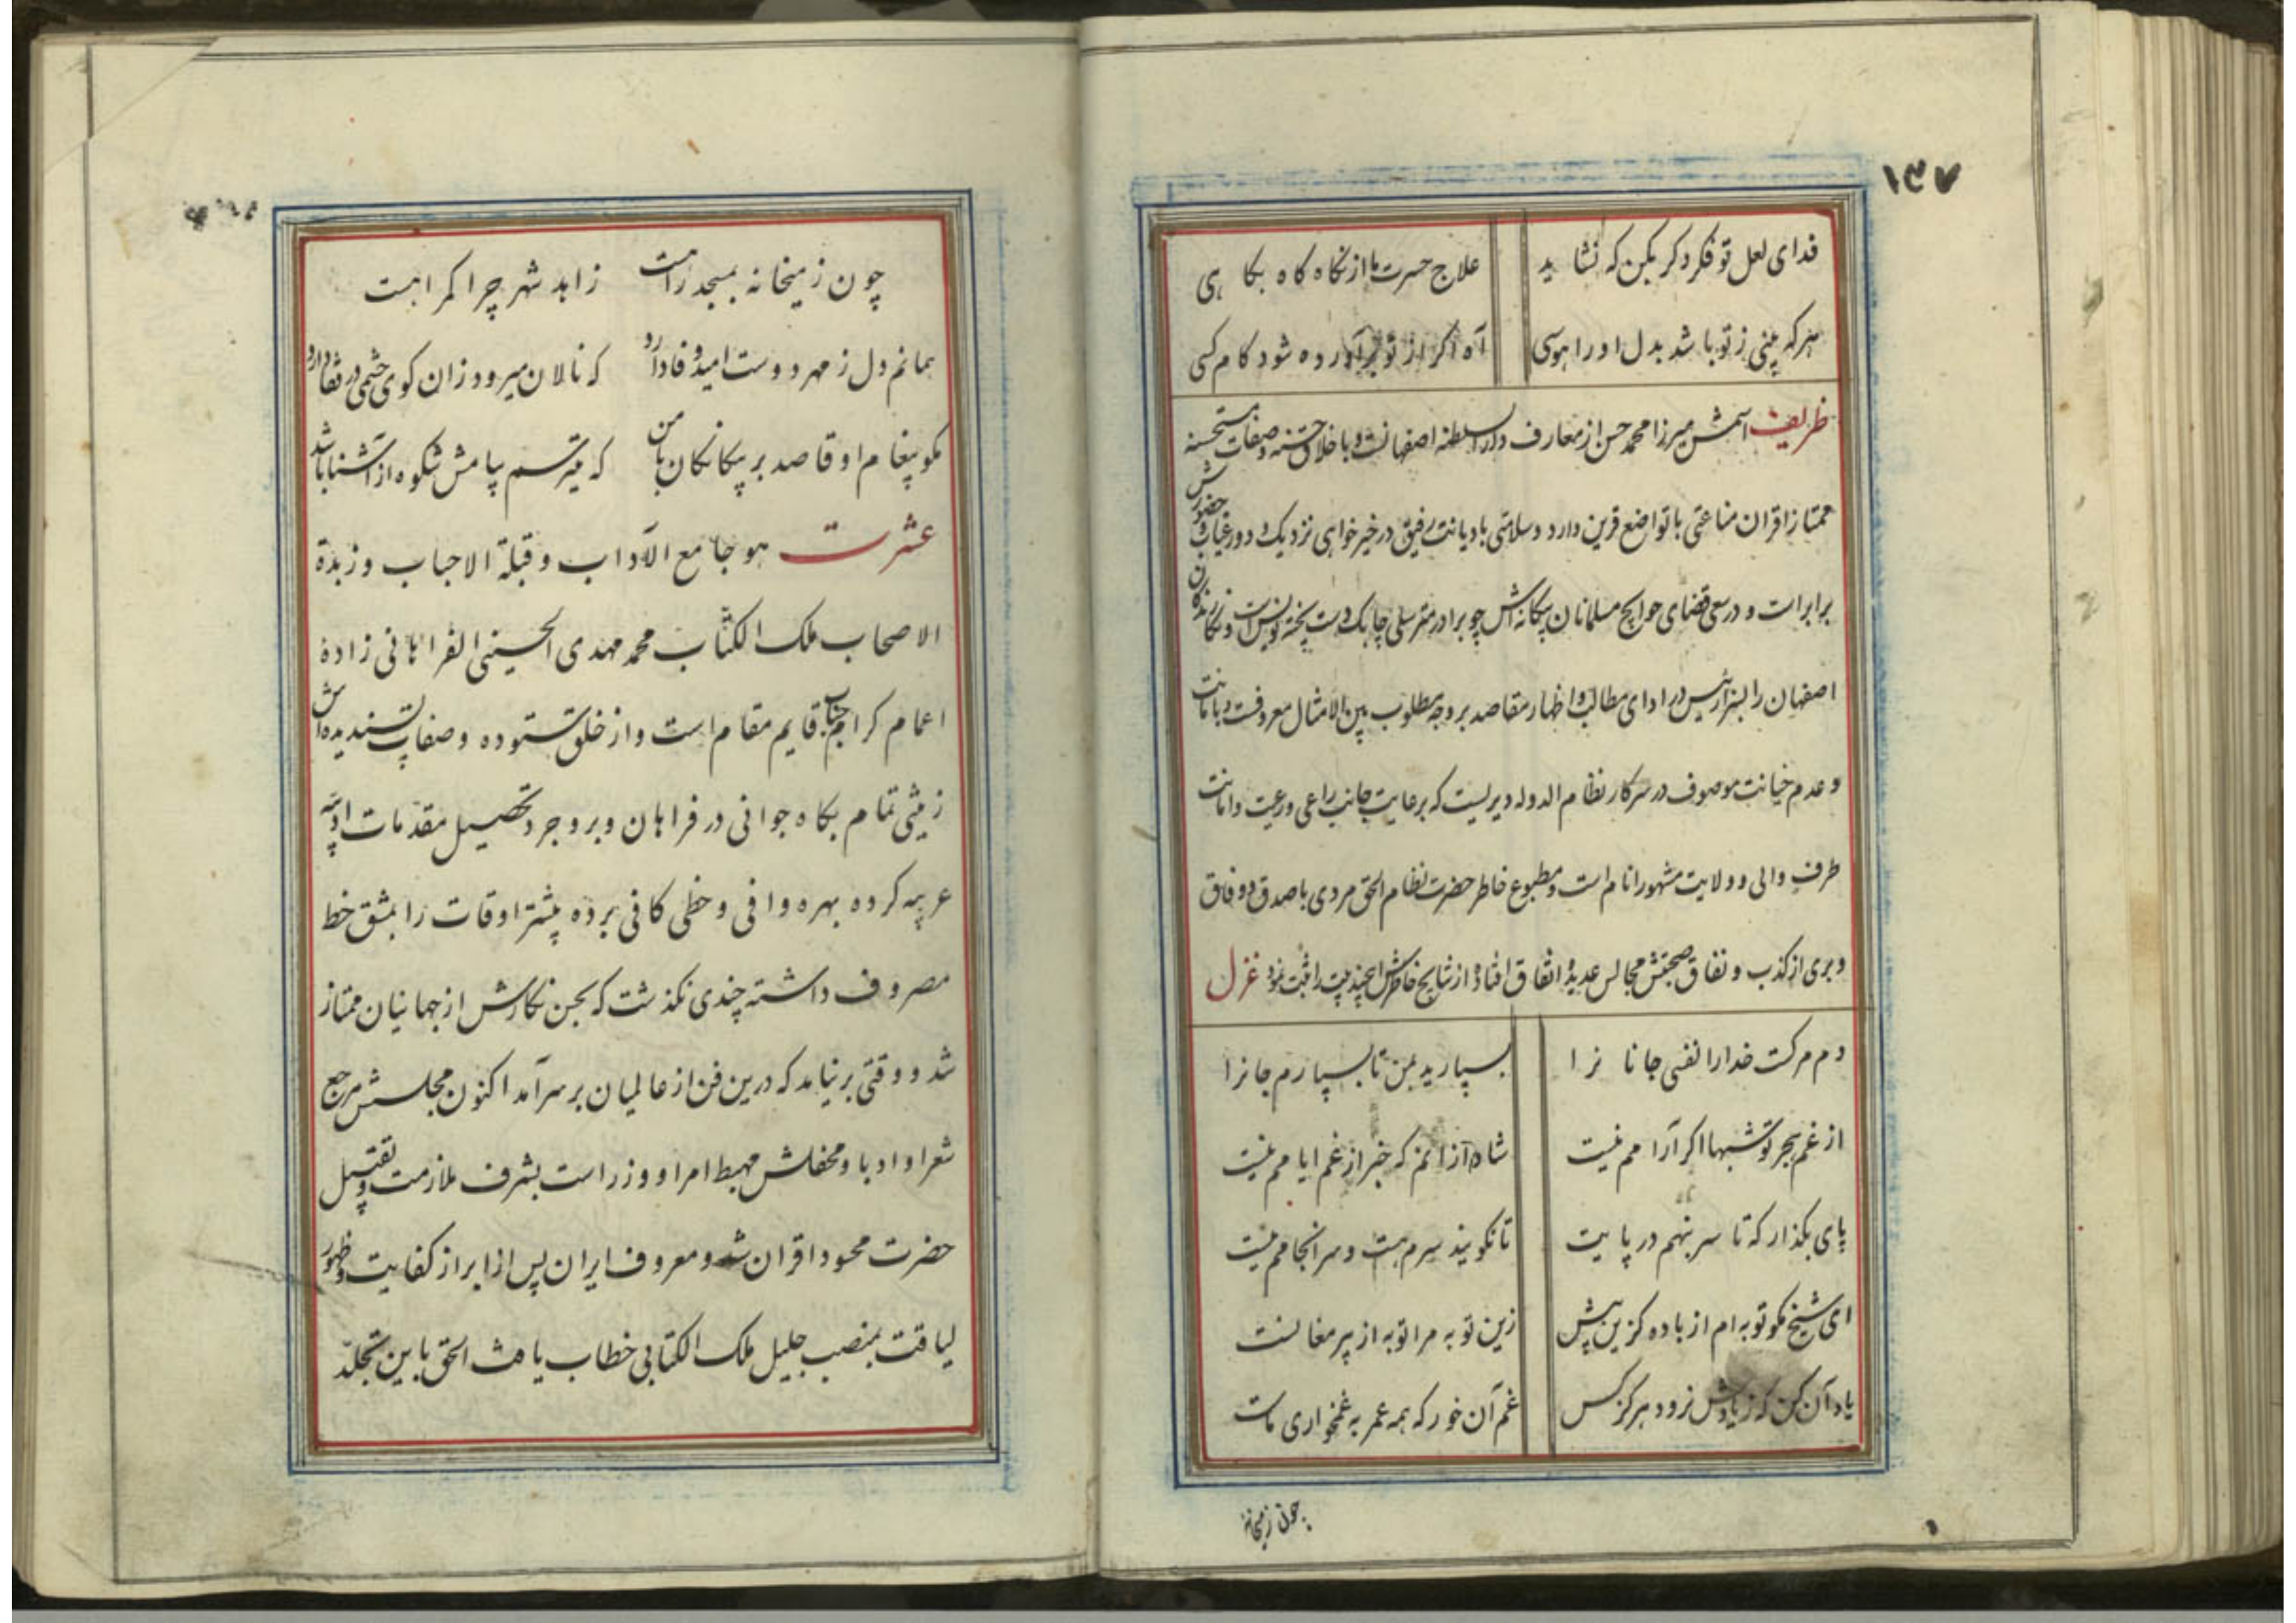 ۱۳۷
فدای لعل تو فکر دکر بکن که نشاید علاج حسرت ما از نکاه کاه بکاهی
هرکه بینی ز تو باشد بدل او را هوسی آه اکر از تو برآورده شود کام کسی
ظریف اسمش میرزا محمد حسن از معارف دارالسلطنه اصفهانست و با خلاق حسنه و صفات مستحسنه
ممتاز اقران مناعتی با تواضع قرین دارد و سلامتی با دیانت رفیق در خیر خواهی نزدیک و دور غیاب و حضورش
برابر است و در سعی قضای حوایج مسلمانان بیکانه اش چو برادر مترسلی چابک دست پخته نویس است و نکارندکان
اصفهان را در ادای مطالب و اظهار مقاصد بر وجه مطلوب بین الامثال معروفست و با مانت
و عدم خیانت موصوف در سرکار نظام الدوله دیریست که برعایت جانب راعی و رعیت و امانت
طرف والی و ولایت مشهور انام است و مطبوع خاطر حضرت نظام الحق مردی با صدق و وفاق
و بری از کذب و نفاق صحبتش مجالس عدیده اتفاق افتاد از نتایج خاطرش اینچند بیت را ثبت نمود غزل
دم مرکست خدا را نفسی جانانرا بسپارید بمن تا بسپارم جانرا
از غم هجر تو شبها اکر آرامم نیست شاد از آنم که خبر از غم ایامم نیست
پای بکذار که تا سر بنهم در پایت تا نکویند سرم هست و سرانجامم نیست
ای شیخ مکو توبه ام از باده کزین پیش زین توبه مرا توبه از پیر مغانست
یاد آن کن که ز یادش نرود هرکز کس غم آن خور که همه عمر به غمخواری ماست
چون زمیخانه
چون ز میخانه بمسجد راهست زاهد شهر چرا کمراهست
بمانم دل ز مهر دوست امید وفا دارد که نالان میرود زان کوی چشمی در قفا دارد
مکو پیغام او قاصد بر بیکانکان با من که میترسم پیامش شکوه از آشنا باشد
عشرت هو جامع الآداب و قبلة الاحباب و زبدة
الاصحاب ملک الکتاب محمد مهدی الحسینی الفراهانی زادهٔ
اعمام کرام جناب قایم مقام است و از خلق ستوده و صفات پسندیده اش
زینتی تمام بکاه جوانی در فراهان و بروجرد تحصیل مقدمات ادبیه
عربیه کرده بهره وافی و حظی کافی برده بیشتر اوقات را بمشق خط
مصروف داشته چندی نکذشت که بحسن نکارش از جهانیان ممتاز
شد و وقتی بر نیامد که درین فن از عالمیان بر سر آمد اکنون مجلسش مرجع
شعرا و ادبا و محفلش مهبط امرا و وزرا است بشرف ملازمت و تقبیل
حضرت محسود اقران شد و معروف ایران پس از ابراز کفایت و ظهور
لیاقت بمنصب جلیل ملک الکتابی خطاب یافت الحق باین تجلد